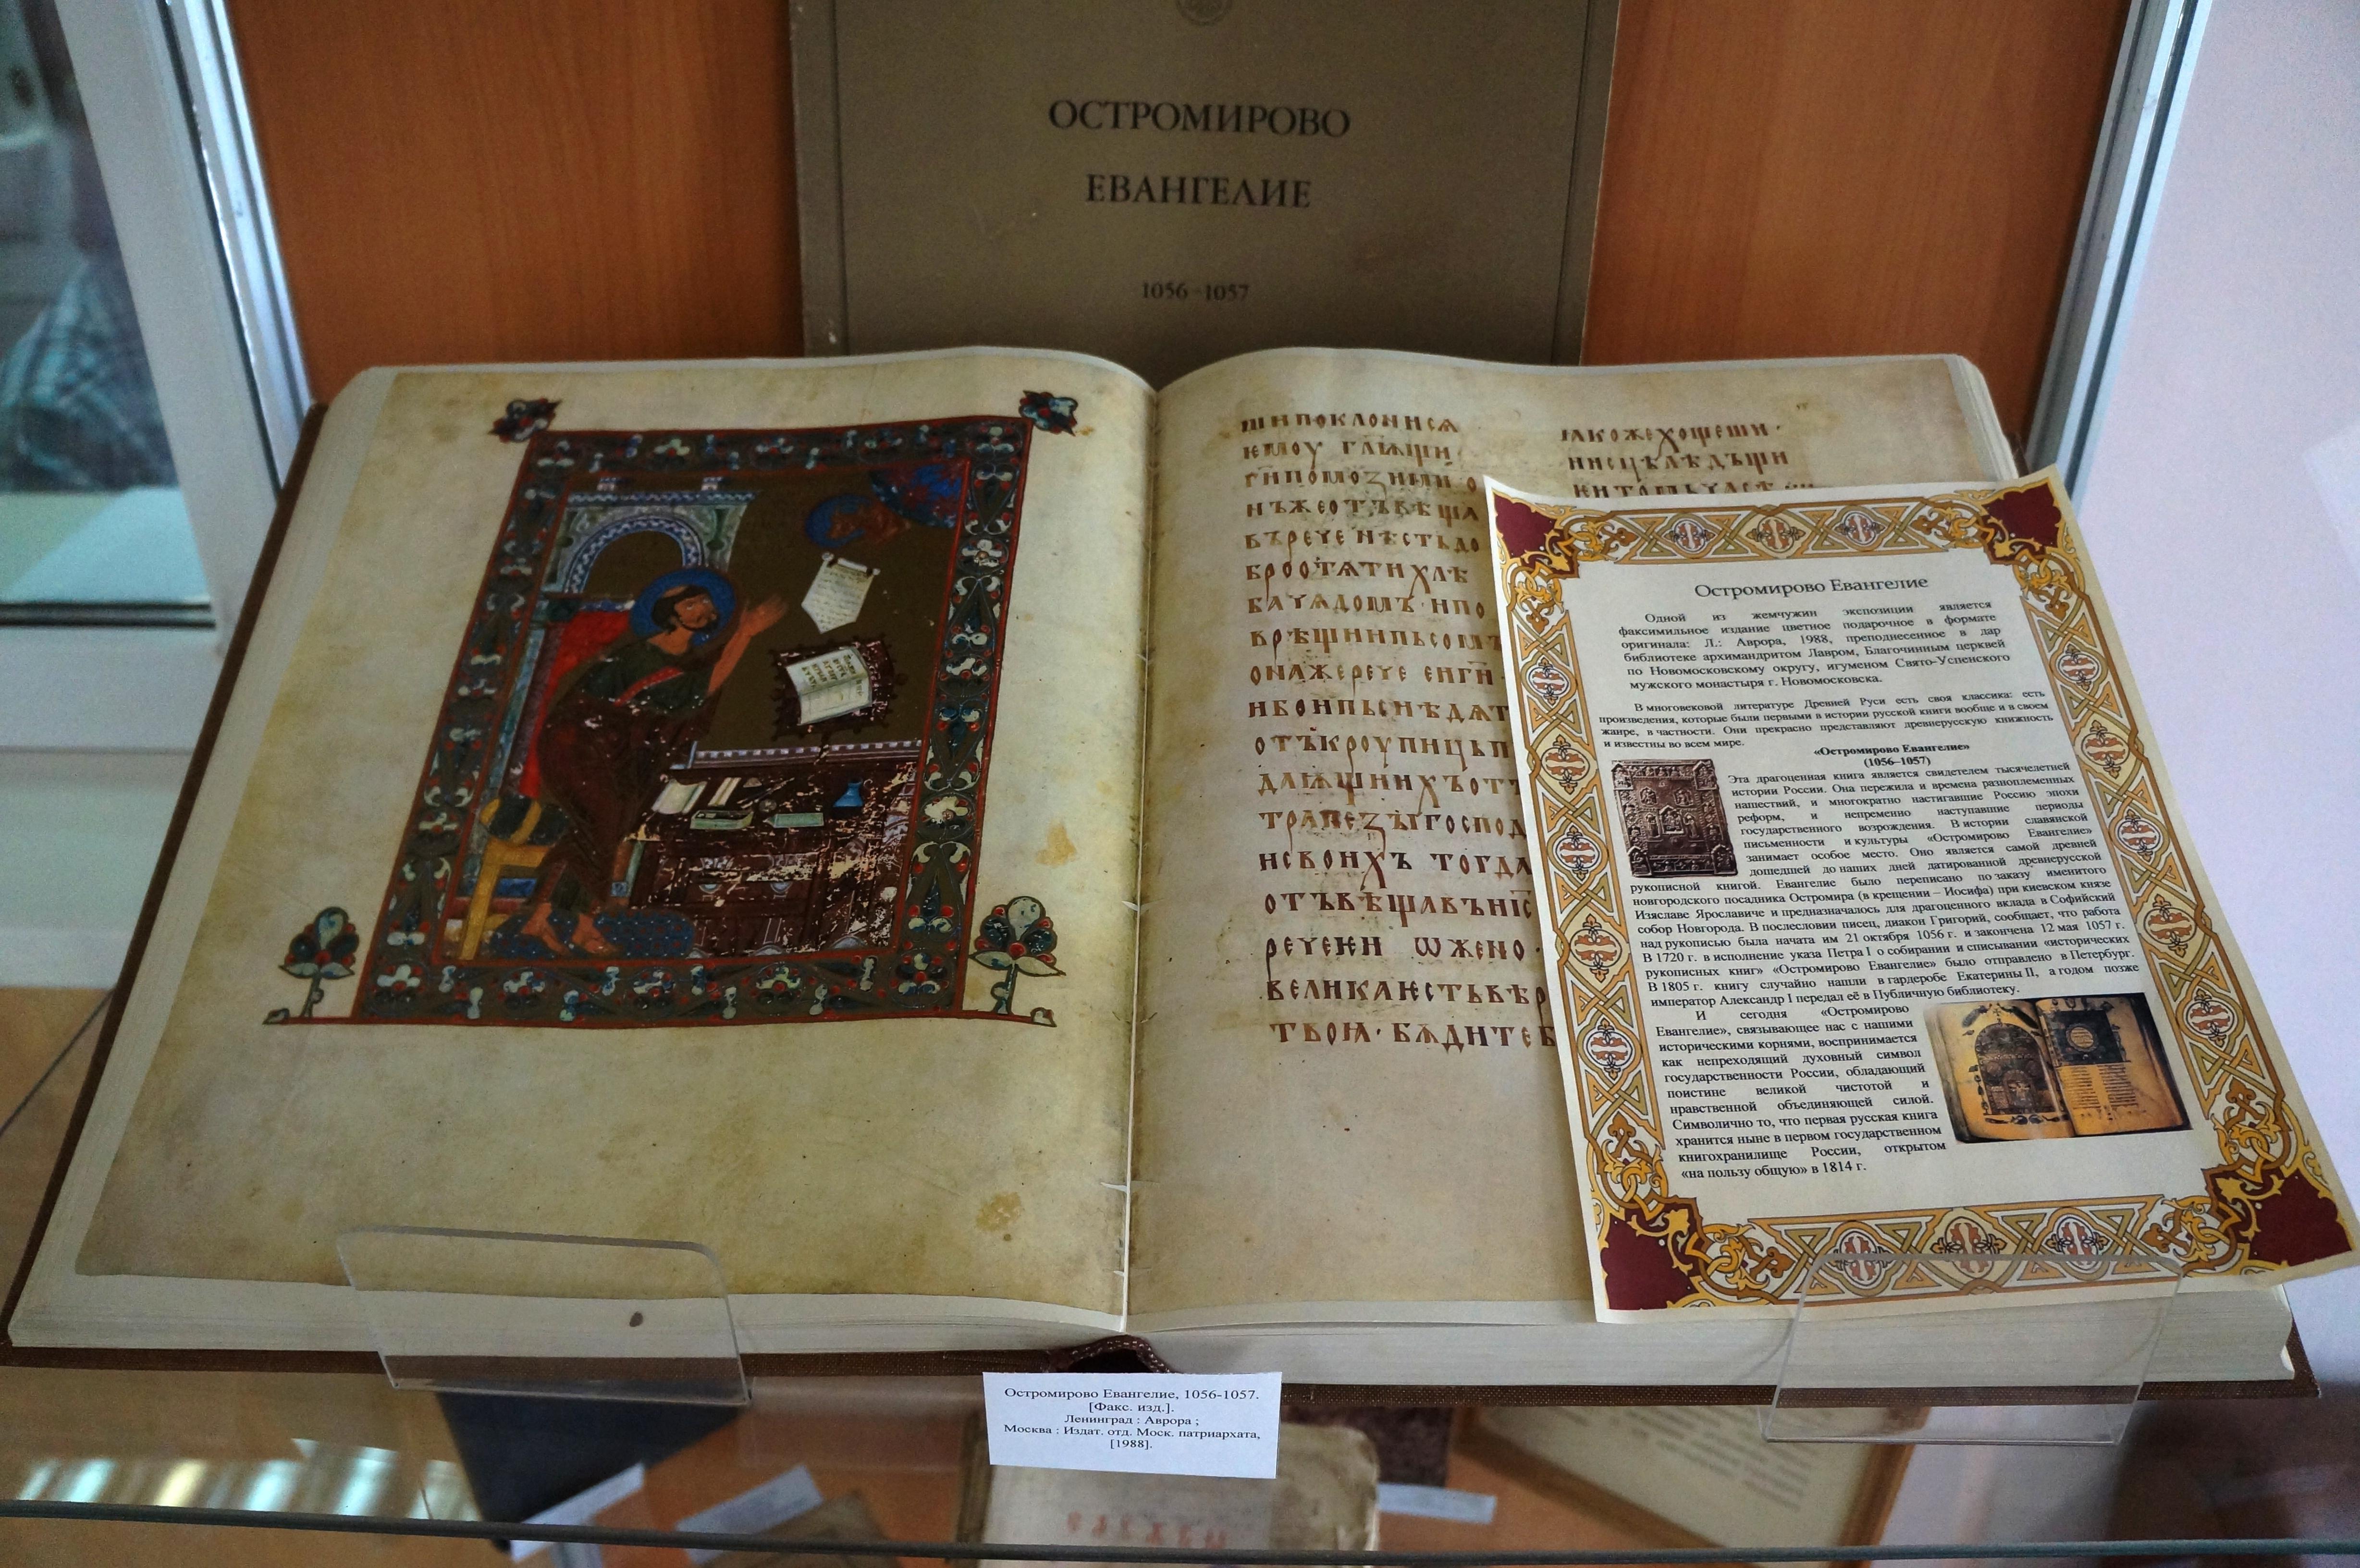 ОСТРОМИРОВО
ЕВАНГЕЛИЕ
1056-1057
шипоклонисѧ
ѥмоу гл҃ѭщи
г҃ипомозими о
нъжеотъвѣща
върече нѣстьдо
броотѧтихлѣ
ба чѧдомъ·ипо
врѣщиипьсомъ
онажерече еиг҃и·
ибоипьсиѣдѧт
отъкроупицьп
даѭщиихъотъ
трапезꙑгоспод
исвоихъ тогда
отъвѣщавъи҃с
речеѥи ѡжено·
великаѥстьвѣр
твоꙗ·бѫдитеб
ꙗкожехощеши·
иисцѣлѣдъщи
Остромирово Евангелие
Одной из жемчужин экспозиции является
факсимильное издание цветное подарочное в формате
оригинала: Л.: Аврора, 1988, преподнесенное в дар
библиотеке архимандритом Лавром, Благочинным церквей
по Новомосковскому округу, игуменом Свято-Успенского
мужского монастыря г. Новомосковска.
В многовековой литературе Древней Руси есть своя классика: есть
произведения, которые были первыми в истории русской книги вообще и в своем
жанре, в частности. Они прекрасно представляют древнерусскую книжность
и известны во всем мире.
«Остромирово Евангелие»
(1056–1057)
Эта драгоценная книга является свидетелем тысячелетней
истории России. Она пережила и времена разноплеменных
нашествий, и многократно настигавшие Россию эпохи
реформ, и непременно наступавшие периоды
государственного возрождения. В истории славянской
письменности и культуры «Остромирово Евангелие»
занимает особое место. Оно является самой древней
дошедшей до наших дней датированной древнерусской
рукописной книгой. Евангелие было переписано по заказу именитого
новгородского посадника Остромира (в крещении – Иосифа) при киевском князе
Изяславе Ярославиче и предназначалось для драгоценного вклада в Софийский
собор Новгорода. В послесловии писец, диакон Григорий, сообщает, что работа
над рукописью была начата им 21 октября 1056 г. и закончена 12 мая 1057 г.
В 1720 г. в исполнение указа Петра I о собирании и списывании «исторических
рукописных книг» «Остромирово Евангелие» было отправлено в Петербург.
В 1805 г. книгу случайно нашли в гардеробе Екатерины II, а годом позже
император Александр I передал её в Публичную библиотеку.
И сегодня «Остромирово
Евангелие», связывающее нас с нашими
историческими корнями, воспринимается
как непреходящий духовный символ
государственности России, обладающий
поистине великой чистотой и
нравственной объединяющей силой.
Символично то, что первая русская книга
хранится ныне в первом государственном
книгохранилище России, открытом
«на пользу общую» в 1814 г.
Остромирово Евангелие, 1056-1057.
[Факс. изд.].
Ленинград : Аврора ;
Москва : Издат. отд. Моск. патриархата,
[1988].